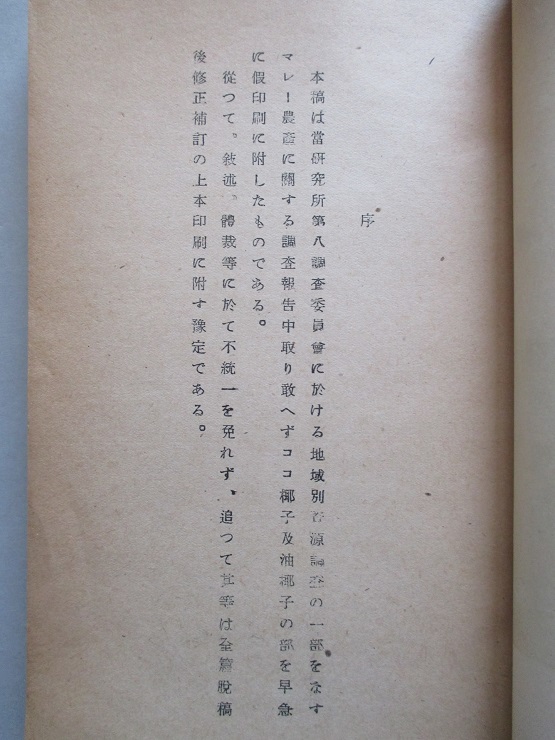 序
本稿は當研究所第八調査委員會に於ける地域別資源調査の一部をなす
マレー農產に關する調査報告中取り敢へずココ椰子及油椰子の部を早急
に假印刷に附したものである。
從つて。敍述。體裁等に於て不統一を免れず、追つて其等は全篇脫稿
後修正補訂の上本印刷に附す豫定である。